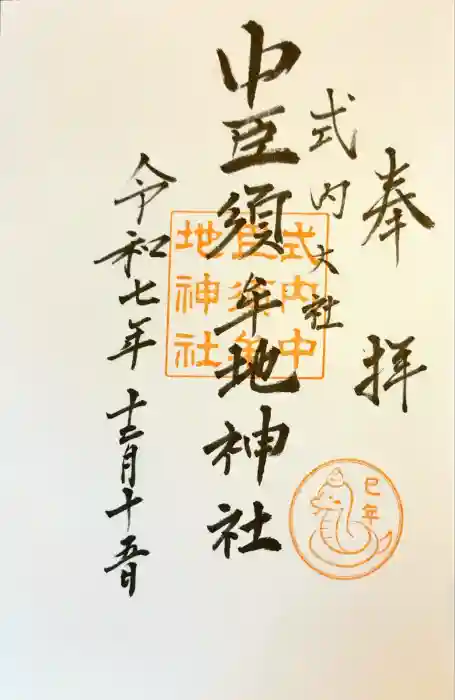 奉拝
式内大社
中臣須牟地神社
令和七年十二月十五日
式内中
臣須牟
地神社
巳年